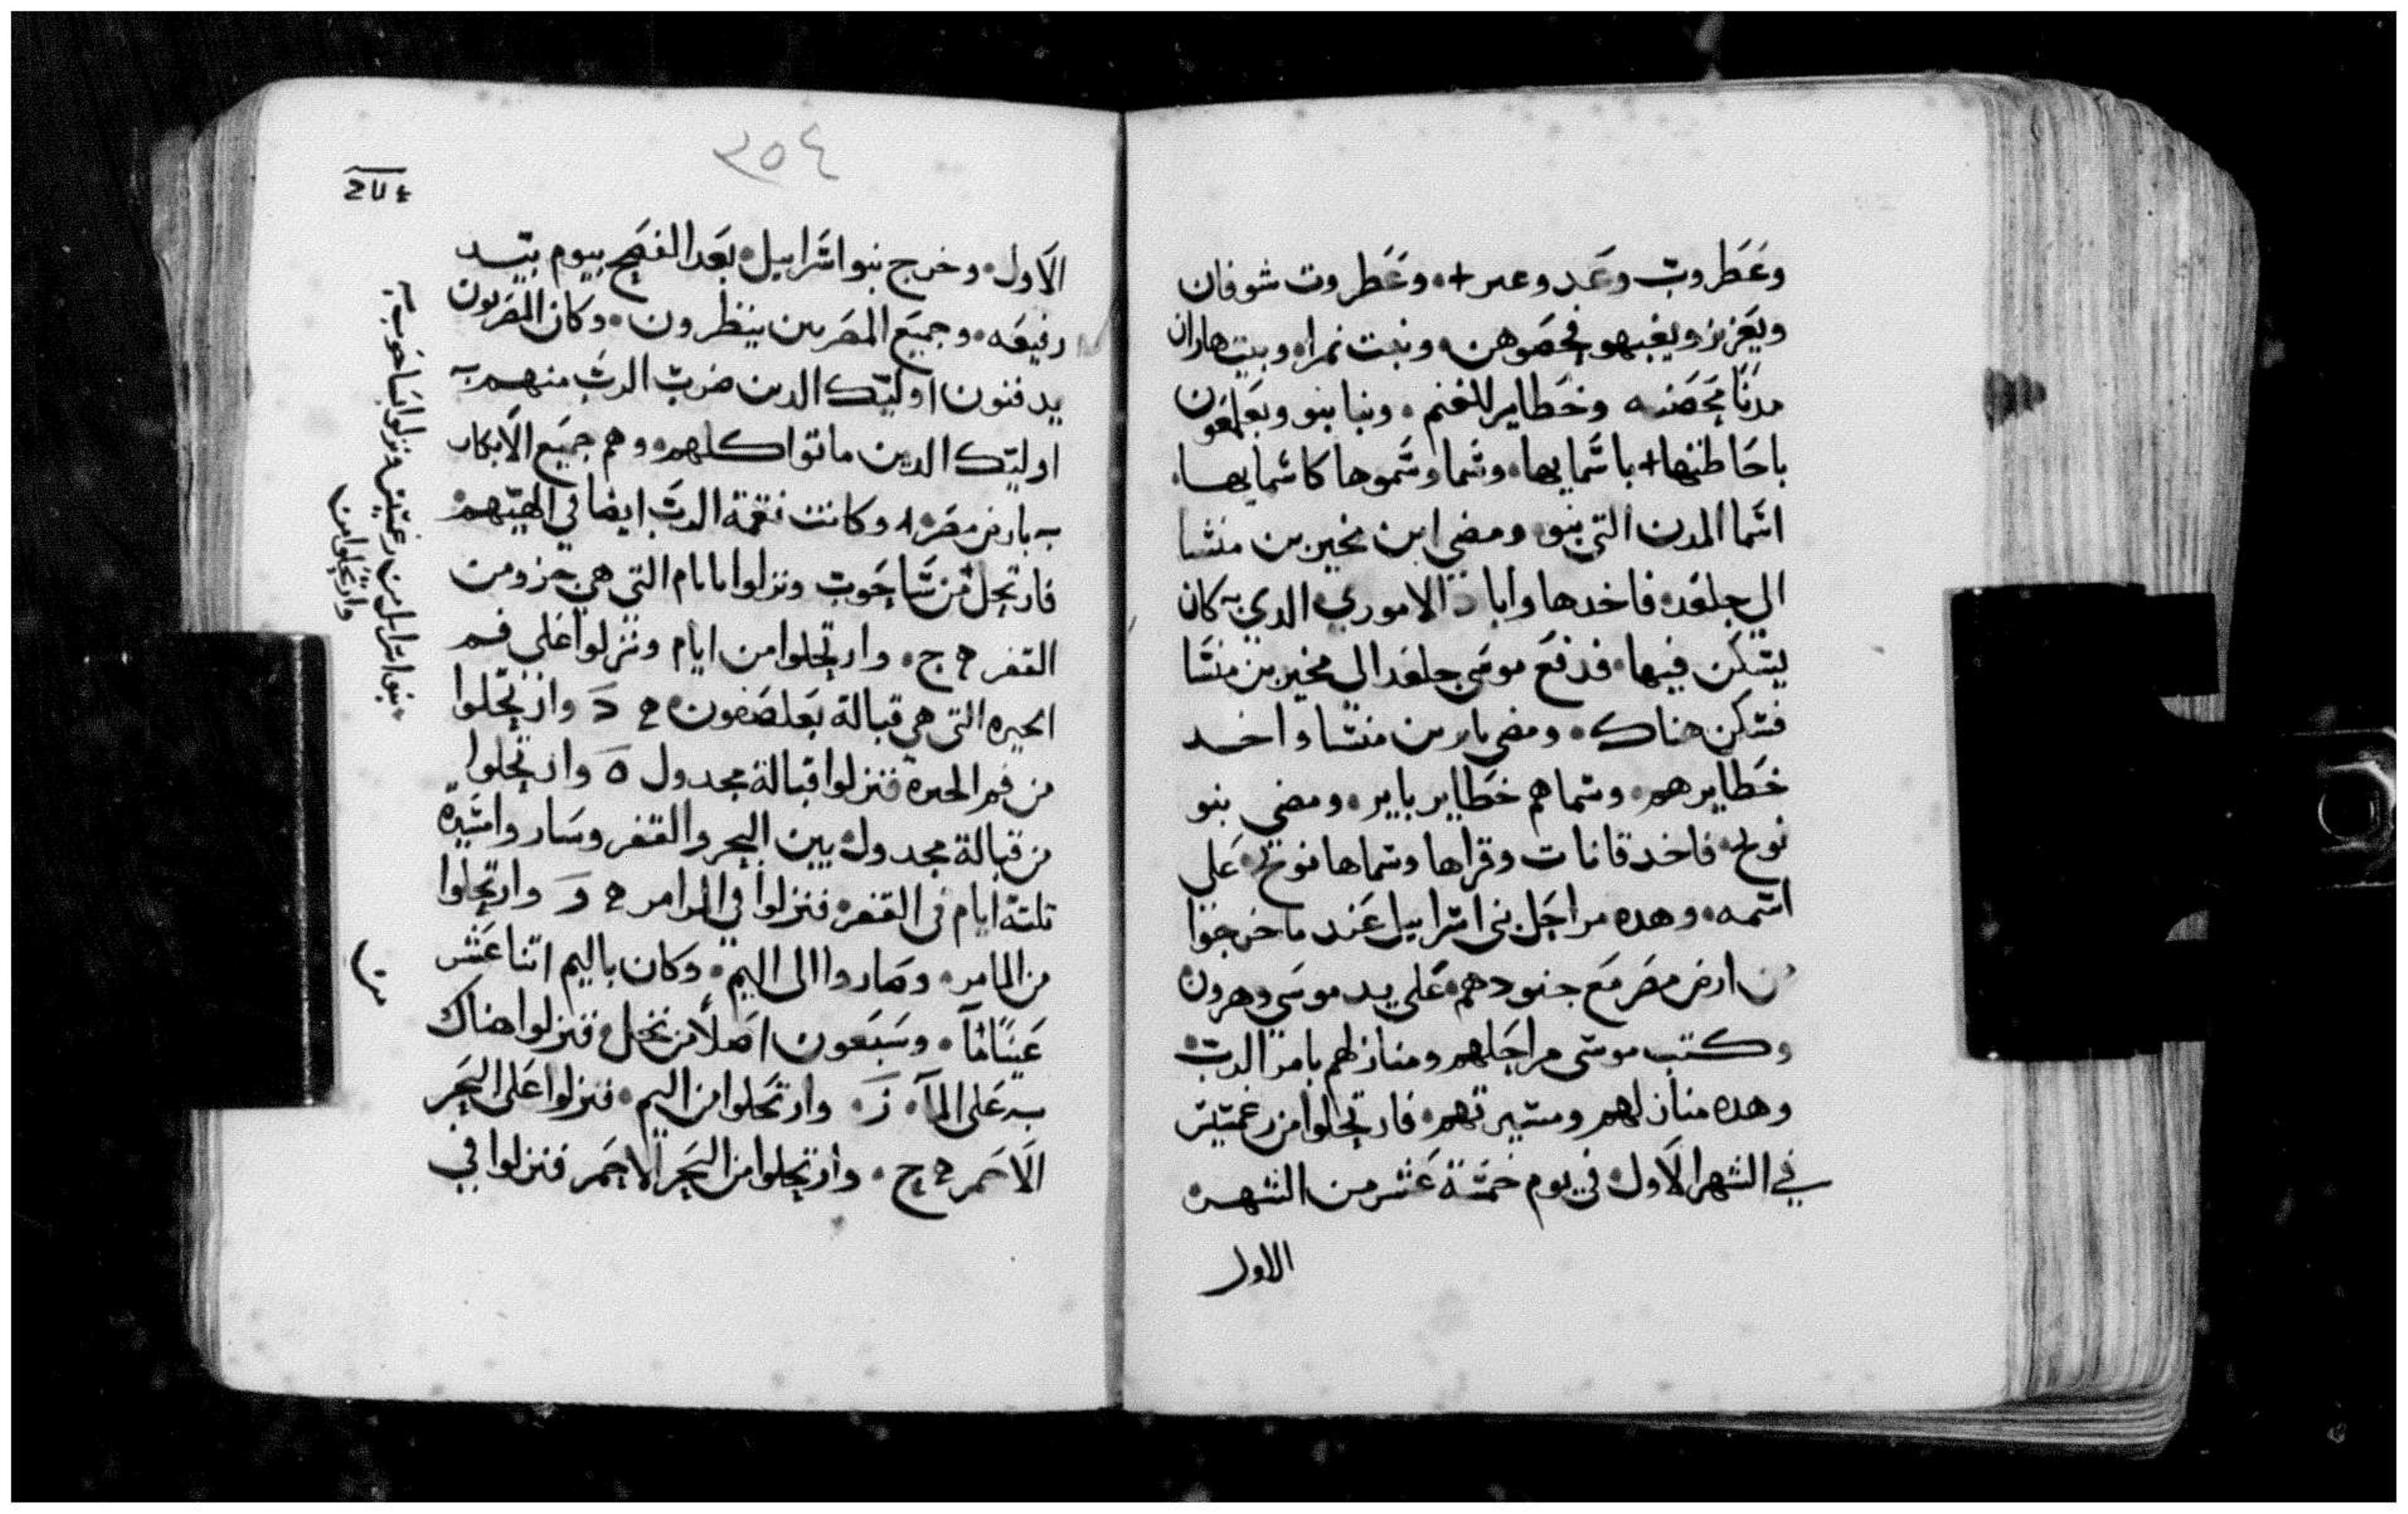 وعَطروت وعَد وعبر + وعَطروت شوفان
ويَعزيز ويغبهو فحصوهن وبنت نمرا وبيت هاران
مدنًا محَصنه وخطاير للغنم وبنا بنو وبعَلمعَون
باحَاطتها + باسَمايها وسَما وسَموها كاسمايها
اسَما المدن التي بنو ومضي ابن مخير بن منشا
الي جلعَد فاخدها واباد الاموري الدي كان
يسَكن فيها فدفع موسَي جلعَد الي مخير بن منسَا
فسَكن هناك ومضي ياير بن منسَا واخد
خَطايرهم وسَماهم خَطاير يايير ومضي بنو
نوح فاخد قانات وقراها وسَماها نوح عَلي
اسَمه وهده مراحَل بني اسَراييل عَند ما خرجوا
من ارض مصَر مَع جنودهم عَلي يد موسَي وهرون
وكتب موسَي مراحَلهم ومنازلهم بامر الرب
وهده منازلهم ومسَيرتهم فارتحلوا من رعَمسَيس
في الشهر الاول في يوم خمسَة عَشر من الشهر
الاول
٣٥٤
الاول وخرج بنو اسَراييل بعَد الفصَح بيوم بيَد
رفيعَه وجميَع المصَريين ينظرون وكان المصَريون
يدفنون اوليك الدين ضرب الرب منهم
اوليك الدين ماتوا كلهم وهم جميَع الابكار
بارض مصَر وكانت نقمة الرب ايضا في الهتهم
فارتحل من سَاحَوت ونزلوا بايام التي هي جزو من
القفر ج وارتحلوا من ايام ونزلوا عَلي فم
الحيره التي هي قبالة بعَلصَفون د وارتحَلوا
من فم الحيره فنزلوا قبالة مجدول ه وارتحلوا
من قبالة مجدول بين البحر والقفر وسَار وامسَيرة
تلتة ايام في القفر فنزلوا في المرامر و وارتحلوا
من المامر وصَاروا الي اليم وكان باليم اتنا عَشر
عَينًا مًا وسَبعَون اصَلًا من نخل فنزلوا هناك
عَلي الما ز وارتحَلوا من اليم فنزلوا عَلي البحَر
الاحَمر ح وارتحلوا من البحَر الاحَمر فنزلوا في
بنو اسَراييل من رعَمسَيس ونزلوا بسَاحَوت
وارتحَلوا من